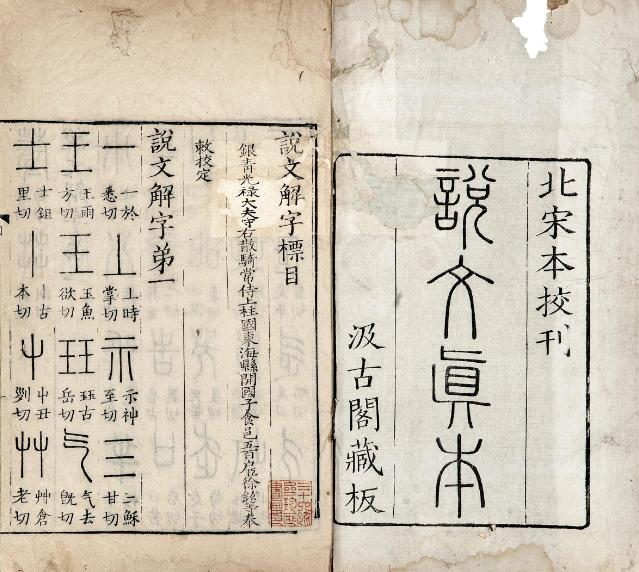 北宋本挍刊
說文眞本
汲古閣藏板
說文解字標目
銀青光祿大夫守右散騎常侍上柱國東海縣開國子食邑五百户臣徐鉉等奉
敕挍定
說文解字弟一
一 一於悉切 丄 丄時掌切 示 示神至切 三 三穌甘切
王 王雨方切 玉 玉魚欲切 玨 玨古岳切 气 气去旣切
士 士鉏里切 丨 丨古本切 屮 屮丑列切 艸 艸倉老切